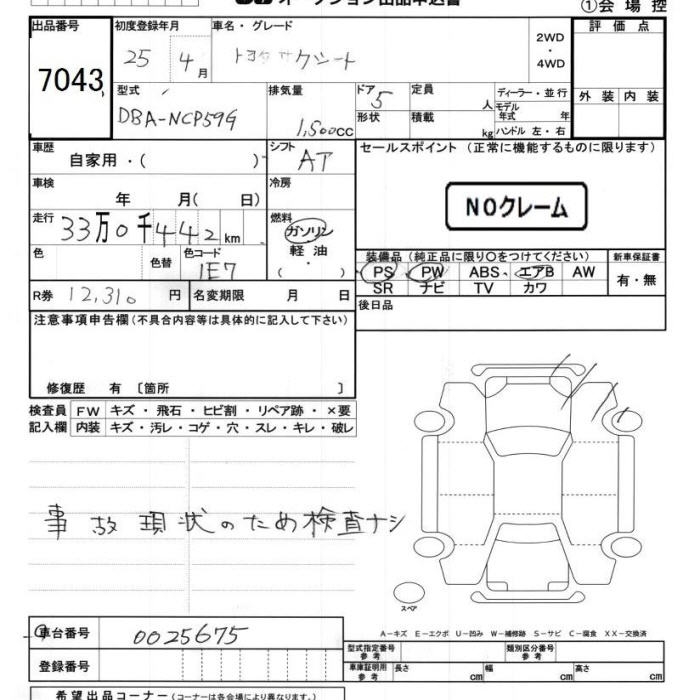 オークション出品申込書
①会場控
出品番号 初度登録年月 車名・グレード 2WD・4WD 評価点
7043 25 4月
外装 内装
型式 排気量 ドア 5 定員 人 ディーラー・並行
DBA-NCP59G 1,500cc 形状 積載 kg モデル年式 年
ハンドル 左・右
車歴 シフト セールスポイント (正常に機能するものに限ります)
自家用・( ) AT
車検 冷房
年 月( 日)
NOクレーム
走行 燃料
33万0千442km ガソリン
軽油
( ・ )
色 色替 色コード 1E7
装備品 (純正品に限り○をつけてください) 新車保証書
PS PW ABS エアB AW 有・無
SR ナビ TV カワ
R券 12,310円 名変期限 月 日 後日品
注意事項申告欄 (不具合内容等は具体的に記入して下さい)
修復歴 有 〔箇所 〕
検査員 FW キズ・飛石・ヒビ割・リペア跡・×要
記入欄 内装 キズ・汚レ・コゲ・穴・スレ・キレ・破レ
事故現状のため検査ナシ
スペア
A-キズ E-エクボ U-凹み W-補修跡 S-サビ C-腐食 XX-交換済
車台番号 0025675
型式指定番号 参考 類別区分番号 参考
登録番号
車庫証明用 参考 長さ cm 幅 cm 高さ cm
希望出品コーナー (コーナーは各会場により異なります。)